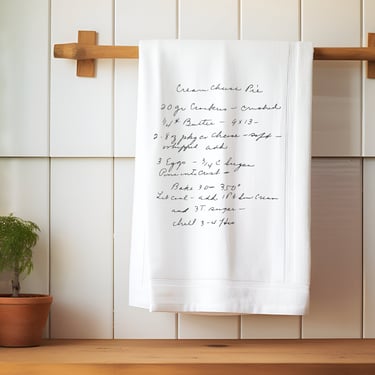 Cream Cheese Pie
20 gr Crackers - crushed
1/4 # Butter - 9x13 -
2 - 8 g pkg cr cheese - soft -
whipped add
3 Eggs - 3/4 C Sugar
Pour into Crust -
Bake 30 - 350°
Let cool - add 1 Pt Sour Cream
and 3 T sugar -
chill 3-4 Hrs